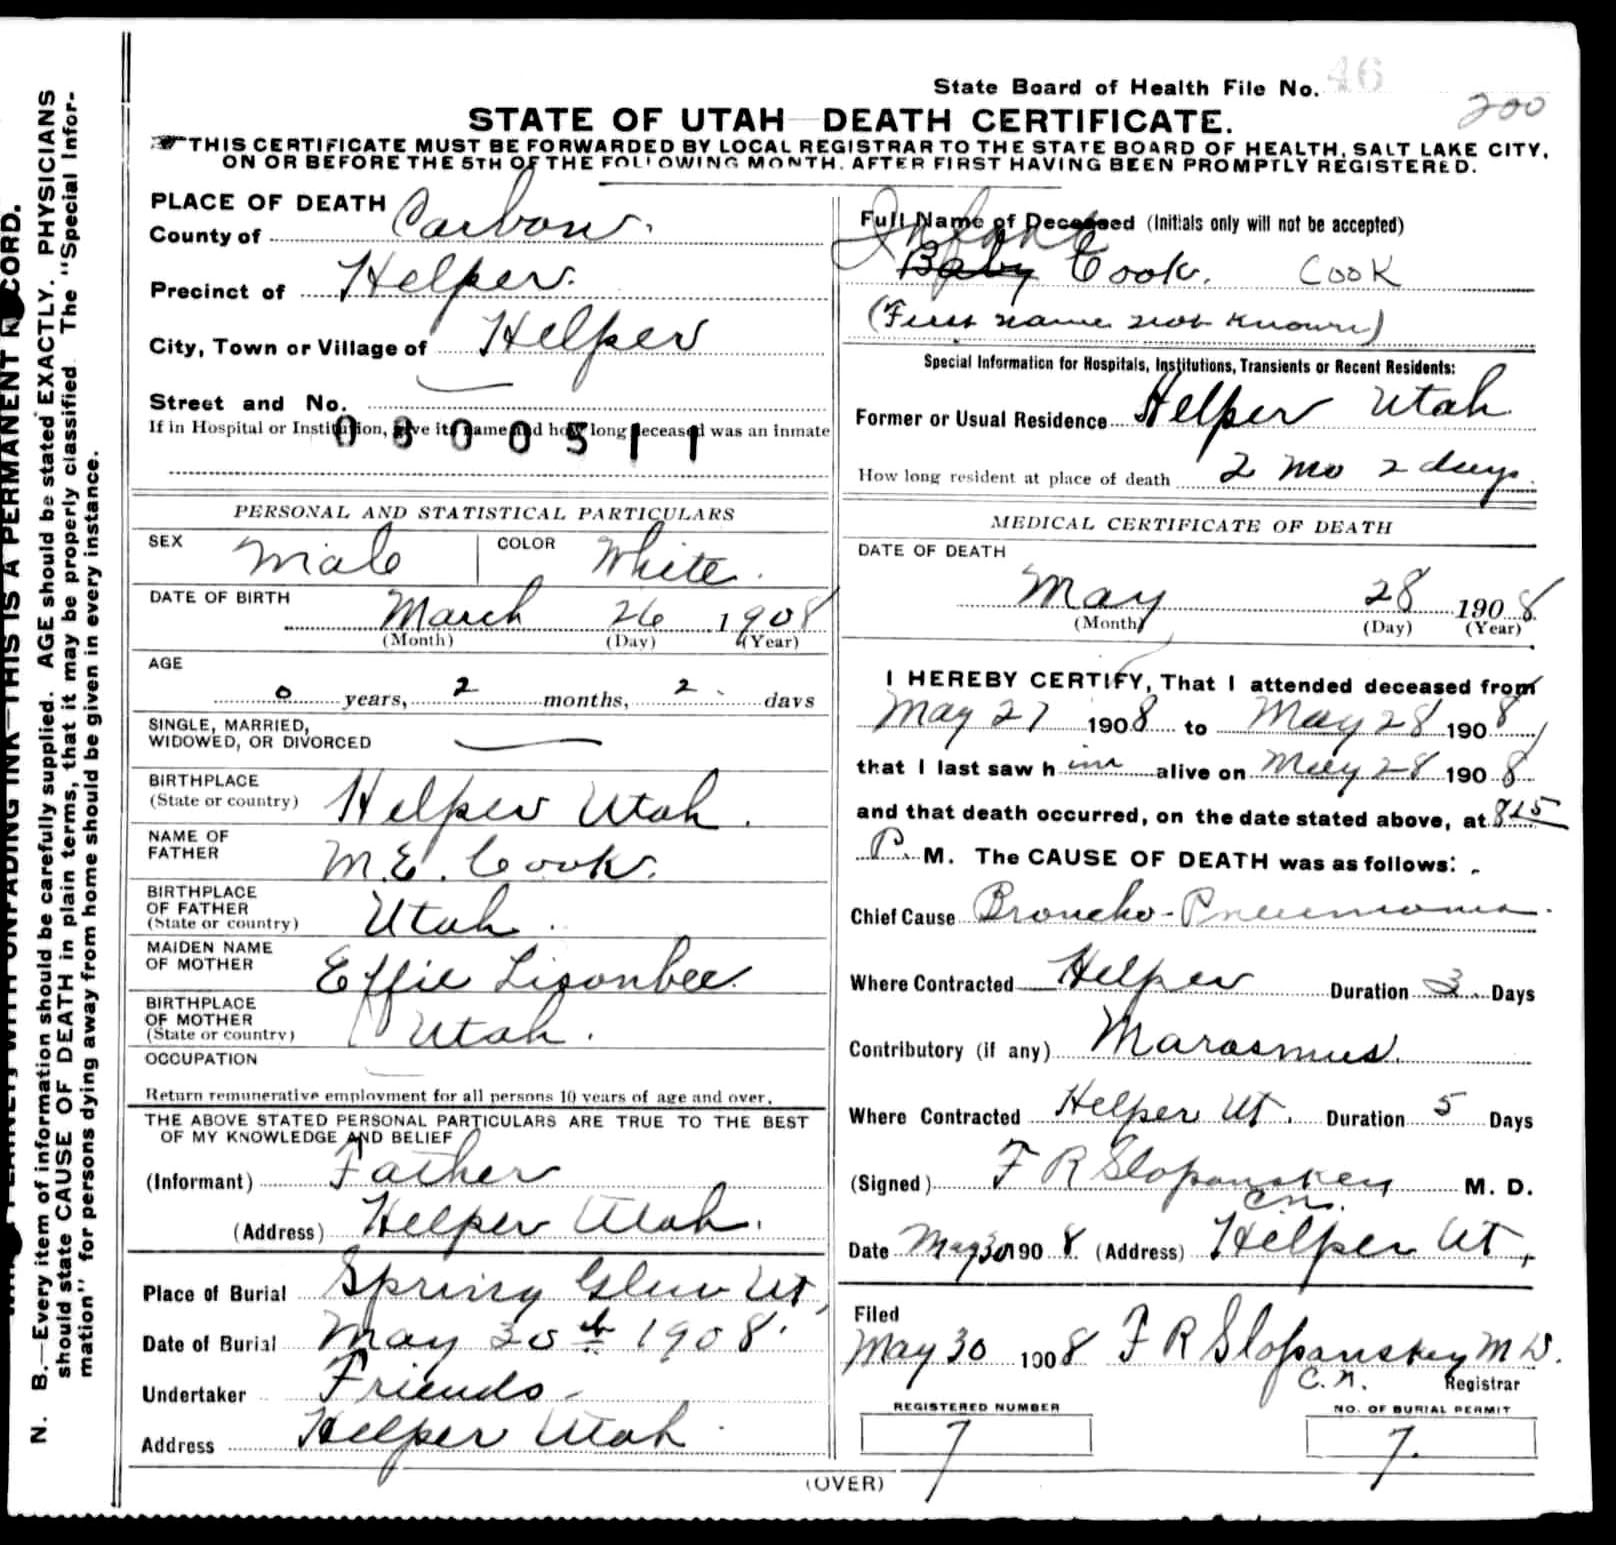 State Board of Health File No. 46
200
STATE OF UTAH—DEATH CERTIFICATE.
THIS CERTIFICATE MUST BE FORWARDED BY LOCAL REGISTRAR TO THE STATE BOARD OF HEALTH, SALT LAKE CITY,
ON OR BEFORE THE 5TH OF THE FOLLOWING MONTH, AFTER FIRST HAVING BEEN PROMPTLY REGISTERED.
PLACE OF DEATH
County of Carbon.
Precinct of Helper.
City, Town or Village of Helper
Street and No. —
If in Hospital or Institution, give its name and how long deceased was an inmate
0800511
PERSONAL AND STATISTICAL PARTICULARS
SEX Male COLOR White.
DATE OF BIRTH
March 26 1908
(Month) (Day) (Year)
AGE
0 years, 2 months, 2 days
SINGLE, MARRIED,
WIDOWED, OR DIVORCED —
BIRTHPLACE
(State or country) Helper Utah.
NAME OF
FATHER M.E. Cook.
BIRTHPLACE
OF FATHER
(State or country) Utah.
MAIDEN NAME
OF MOTHER Effie Lisonbee.
BIRTHPLACE
OF MOTHER
(State or country) Utah.
OCCUPATION —
Return remunerative employment for all persons 10 years of age and over.
THE ABOVE STATED PERSONAL PARTICULARS ARE TRUE TO THE BEST
OF MY KNOWLEDGE AND BELIEF
(Informant) Father
(Address) Helper Utah.
Place of Burial Spring Glen Ut,
Date of Burial May 30th 1908.
Undertaker Friends
Address Helper Utah
Full Name of Deceased (Initials only will not be accepted)
Infant
Baby Cook. COOK
(First name not known)
Special Information for Hospitals, Institutions, Transients or Recent Residents:
Former or Usual Residence Helper Utah
How long resident at place of death 2 mo 2 days.
MEDICAL CERTIFICATE OF DEATH
DATE OF DEATH
May 28 1908
(Month) (Day) (Year)
I HEREBY CERTIFY, That I attended deceased from
May 27 1908 to May 28 1908
that I last saw him alive on May 28 1908
and that death occurred, on the date stated above, at 815
P. M. The CAUSE OF DEATH was as follows:
Chief Cause Broncho-Pneumonia.
Where Contracted Helper Duration 3 Days
Contributory (if any) Marasmus.
Where Contracted Helper Ut. Duration 5 Days
(Signed) F R Slopanskey M. D.
C.N.
Date May 30 1908. (Address) Helper Ut,
Filed
May 30 1908 F R Slopanskey M D.
C.N. Registrar
REGISTERED NUMBER
7
NO. OF BURIAL PERMIT
7.
(OVER)
N. B.—Every item of information should be carefully supplied. AGE should be stated EXACTLY. PHYSICIANS
should state CAUSE OF DEATH in plain terms, that it may be properly classified. The "Special Infor-
mation" for persons dying away from home should be given in every instance.
WITH UNFADING INK—THIS IS A PERMANENT RECORD.